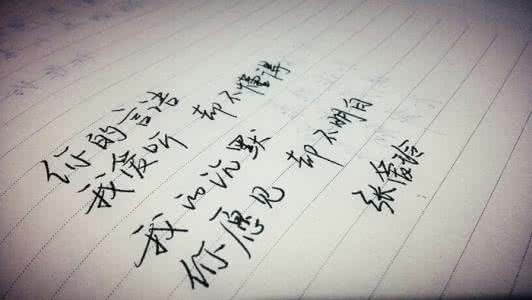 你的言语
我爱听 却不懂得
我的沉默
你愿见 却不明白
张爱玲